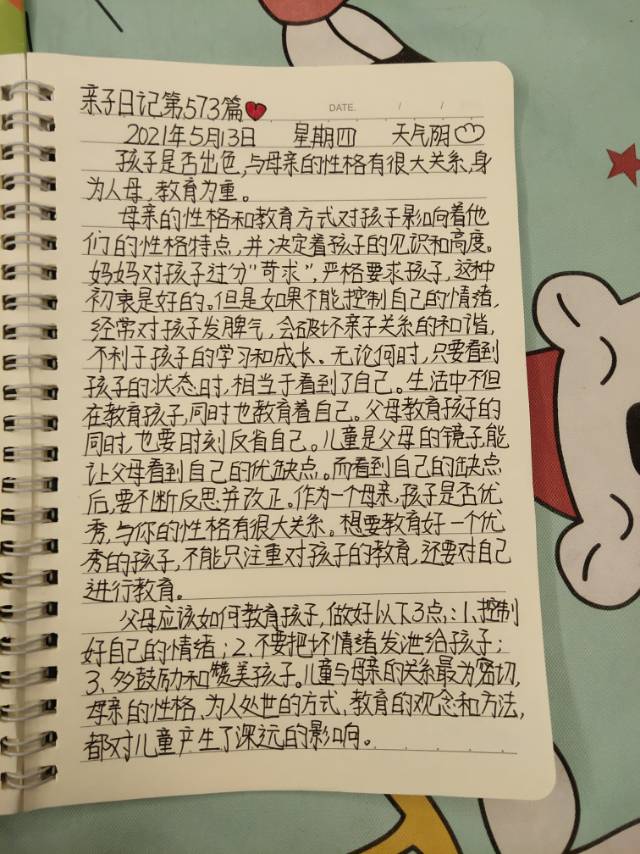 亲子日记第573篇
DATE. / /
2021年5月13日 星期四 天气阴
孩子是否出色,与母亲的性格有很大关系,身
为人母,教育为重。
母亲的性格和教育方式对孩子影响着他
们的性格特点,并决定着孩子的见识和高度。
妈妈对孩子过分"苛求",严格要求孩子,这种
初衷是好的。但是如果不能控制自己的情绪,
经常对孩子发脾气,会破坏亲子关系的和谐,
不利于孩子的学习和成长。无论何时,只要看到
孩子的状态时,相当于看到了自己。生活中不但
在教育孩子,同时也教育着自己。父母教育孩子的
同时,也要时刻反省自己。儿童是父母的镜子,能
让父母看到自己的优缺点。而看到自己的缺点
后,要不断反思并改正。作为一个母亲,孩子是否优
秀,与你的性格有很大关系。想要教育好一个优
秀的孩子,不能只注重对孩子的教育,还要对自己
进行教育。
父母应该如何教育孩子,做好以下3点,:1、控制
好自己的情绪;2.不要把坏情绪发泄给孩子;
3、多鼓励和赞美孩子。儿童与母亲的关系最为密切,
母亲的性格,为人处世的方式,教育的观念和方法,
都对儿童产生了深远的影响。